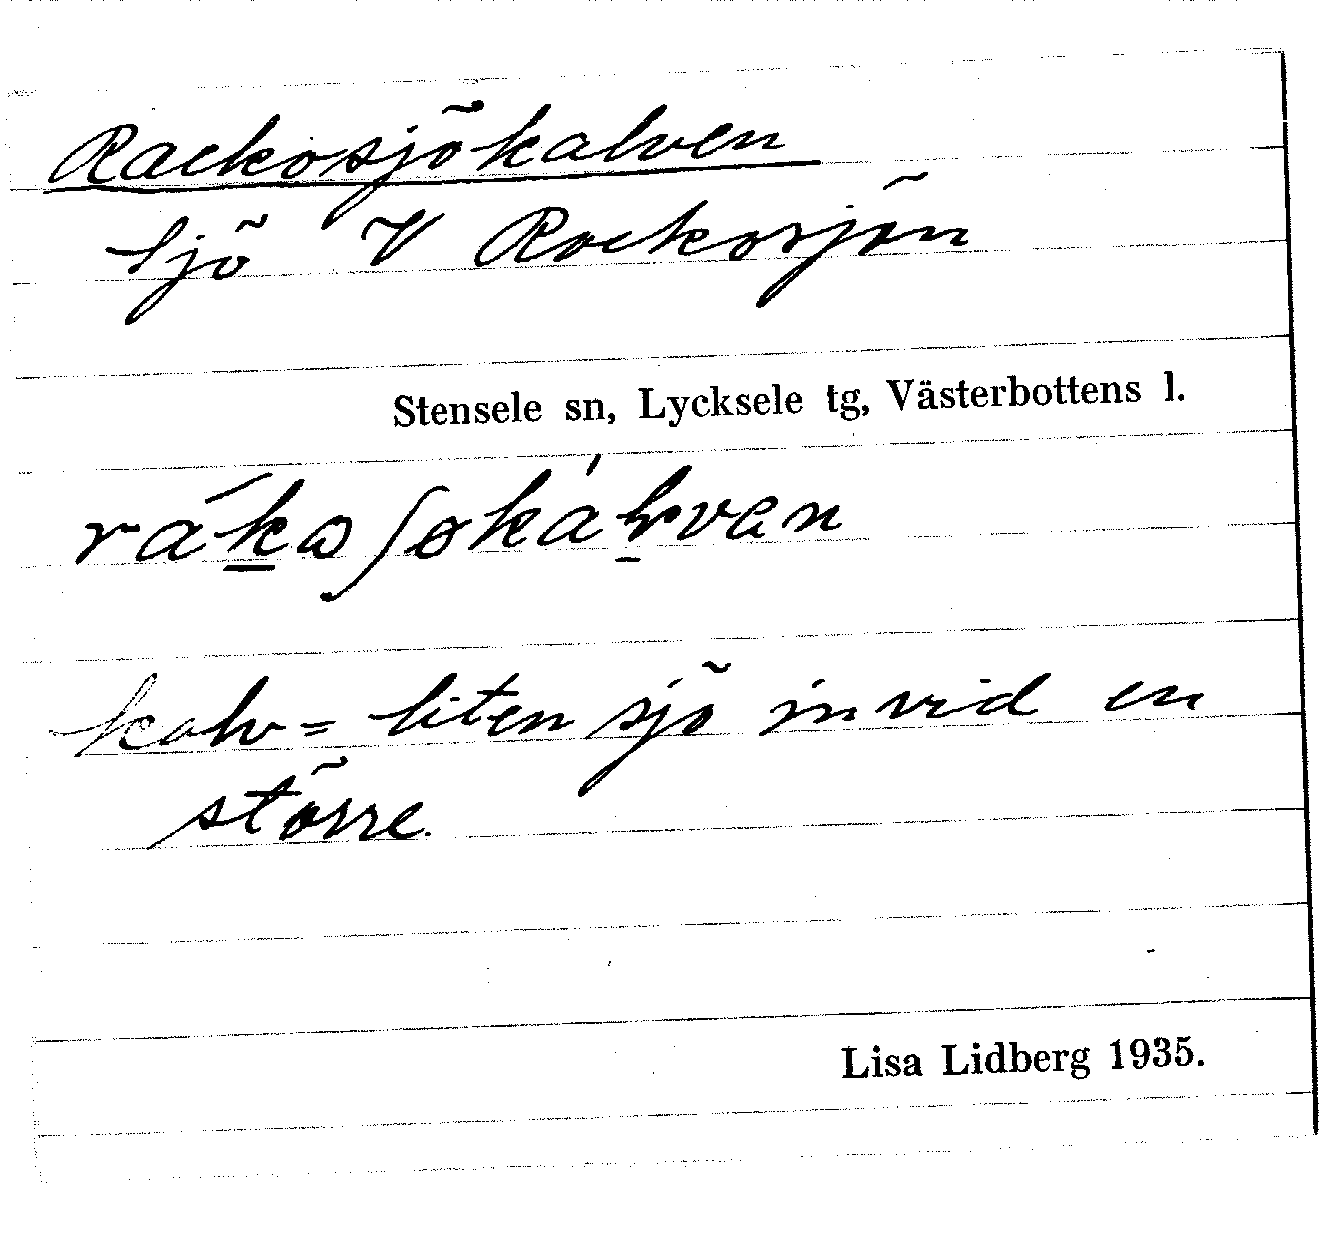 Rackosjökalven
Sjö V Rackosjön
Stensele sn, Lycksele tg, Västerbottens l.
kalv = liten sjö invid en
större.
Lisa Lidberg 1935.